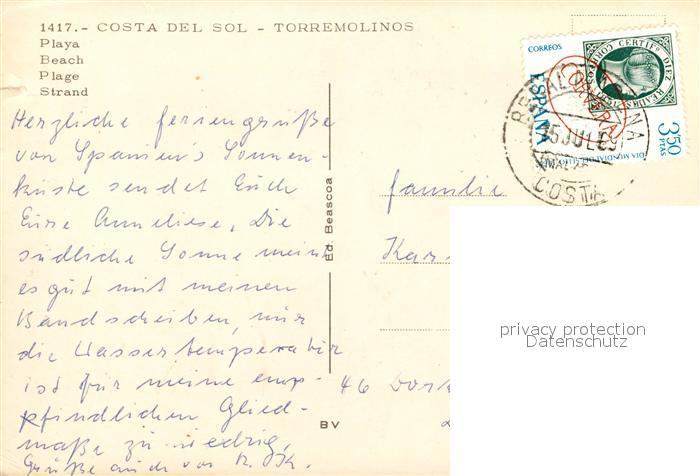 1417.- COSTA DEL SOL - TORREMOLINOS
Playa
Beach
Plage
Strand
Herzliche Feriengrüße
von Spanien's Sonnen-
küste sendet Euch
Eure Anneliese, Die
südliche Sonne meint
es gut mit meinen
Bandscheiben, nur
die Wassertemperatur
ist für meine emp-
pfindlichen Glied-
maße zu niedrig.
Grüße auch von
Ed. Beascoa
BV
CORREOS
ESPAÑA
CERTIFº DIEZ REALES
CORREOS
CORVERA
3'50
PTAS
DIA MUNDIAL DEL SELLO
BENALMADENA
15 JUL 69
COSTA
Familie
46 Dort
privacy protection
Datenschutz